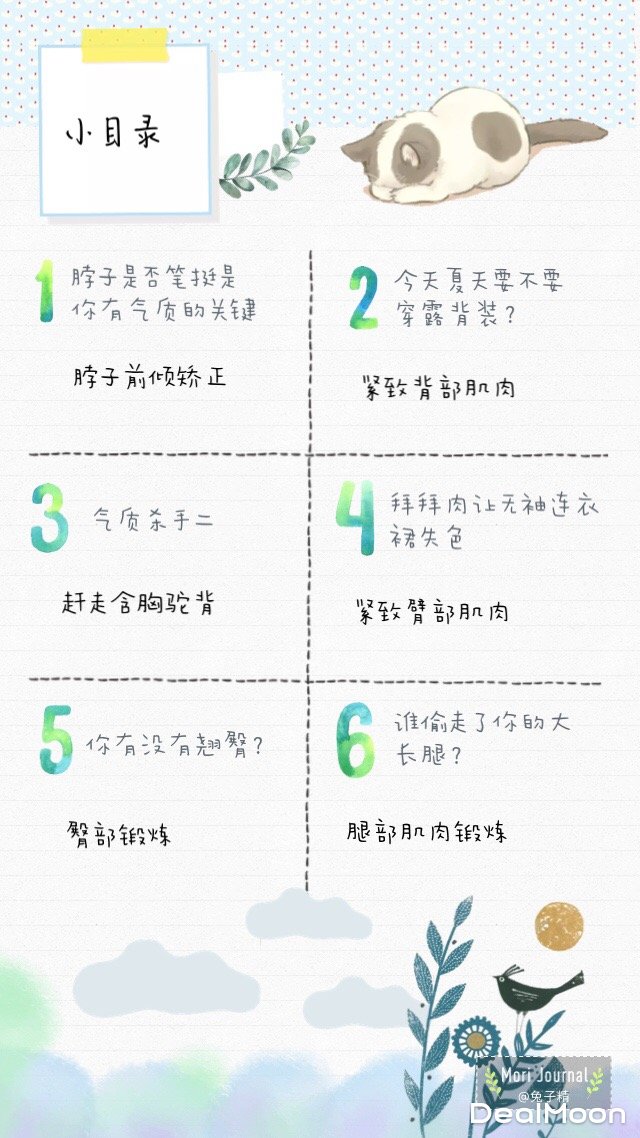 小目录
1
脖子是否笔挺是
你有气质的关键
脖子前倾矫正
2
今天夏天要不要
穿露背装？
紧致背部肌肉
3
气质杀手二
赶走含胸驼背
4
拜拜肉让无袖连衣
裙失色
紧致臂部肌肉
5
你有没有翘臀？
臀部锻炼
6
谁偷走了你的大
长腿？
腿部肌肉锻炼
Mori Journal
@兔子精
DealMoon